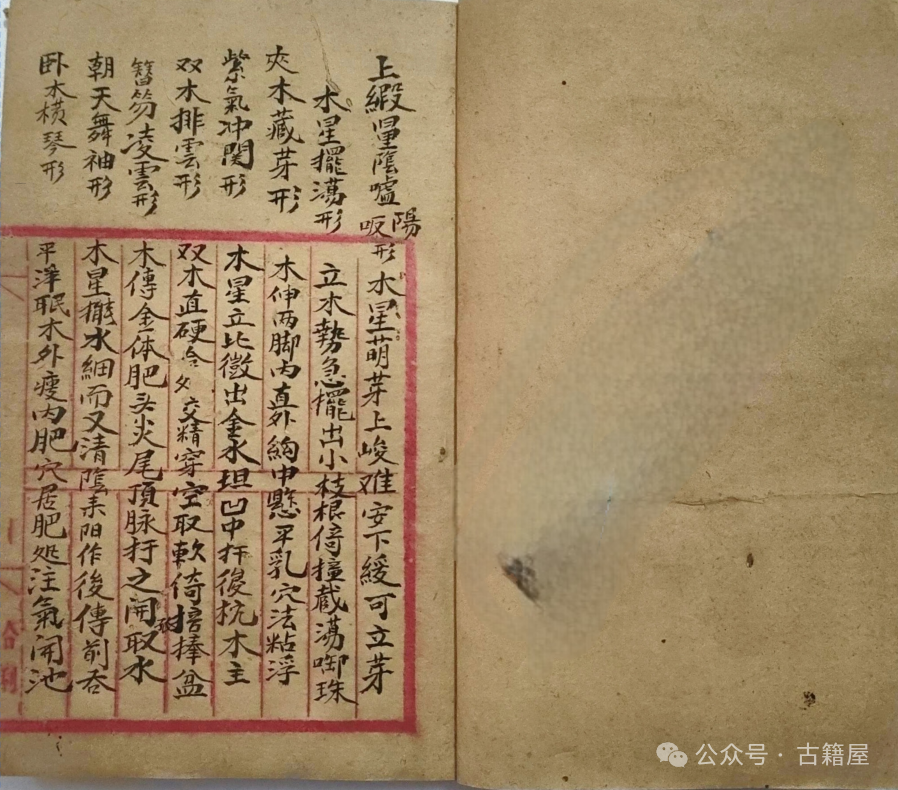 上緞罣陰嘘陽吸形
水星擺蕩形
夾木藏芽形
紫氣冲関形
双木排雲形
簪笏凌雲形
朝天舞袖形
卧木橫琴形
木星萌芽上峻难安下緩可立芽
立木勢急擺出小枝根倚撞藏蕩啣珠
木伸两脚内直外鈎中懸平乳穴法粘浮
木星立比微出金水坦凹中扦後杭木主
双木直硬合夕交精穿空取軟倚掊捧盆
木傳金体肥头尖尾頂脉打之開取水
木星擺水細而又清陰耒阳作後傳前吞
平洋眠木外瘦内肥穴居肥処注氣開池
合利
公众号·古籍屋